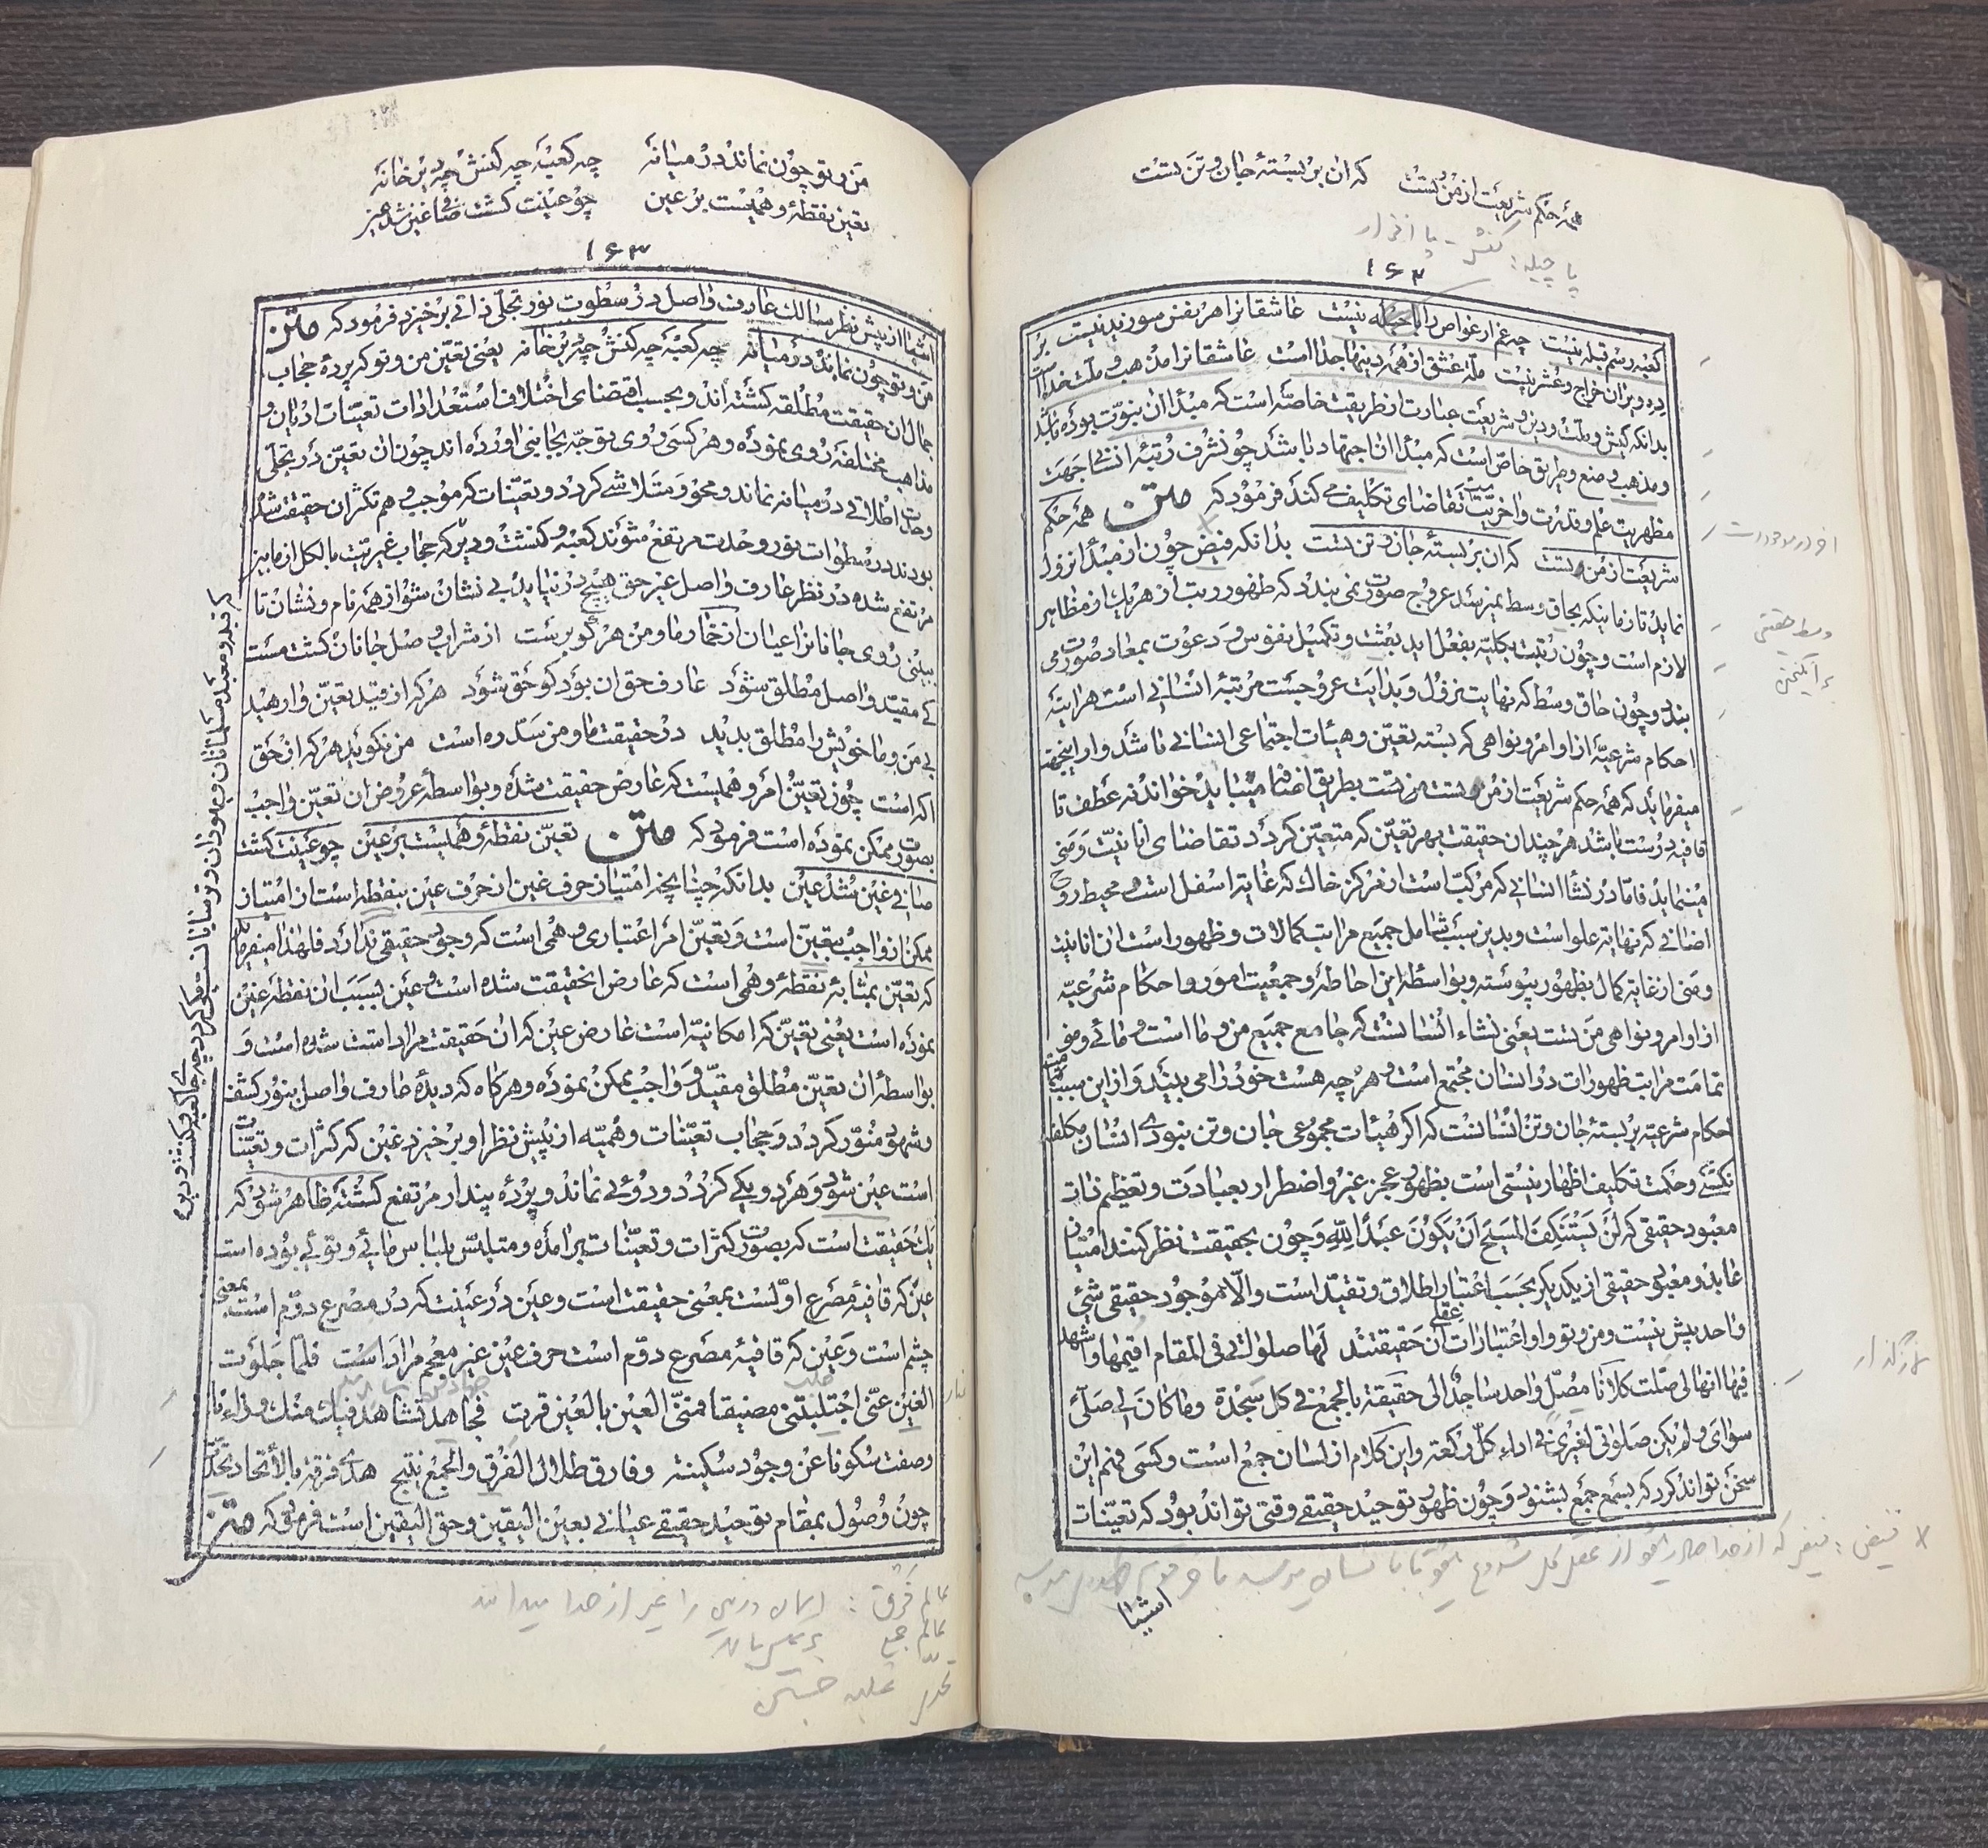 همه حکم شریعت از من تست که آن بر بستهٔ جان و تن تست
پاچیله: کفش - پا افزار
۱۶۲
کعبه رسم قبله نیست چه غم ار غواص را پاچیله نیست عاشقانرا هر نفس سوزیدنیست بر
ده ویران خراج و عشر نیست ملة عشق از همه دینها جدا است عاشقانرا مذهب و ملت خداست
بدانکه کیش و ملت و دین و شریعت عبارت از طریقت خاصه است که مبدأ ان نبوّت بوده باشد
و مذهب وضع و طریق خاص است که مبدأ ان اجتهاد باشد چون شرف رتبهٔ انسانی جهت
مظهریت علم و قدرت و اخریّت تقاضای تکلیف می کند فرمود که متن همه حکم
شریعت از من تست که ان بر بستهٔ جان و تن تست بدانکه فیض چون از مبدأ نزول
نماید تا زمانیکه بحاق وسط نمیرسد عروج صورت نمی بندد که ظهور ورتب از هر یک از مظاهر
لازم است و چون رتبت بکلیّه بفعل اید بعثت و تکمیل نفوس و دعوت بمعاد صورت می
بندد و چون حاق وسط که نهایت نزول و بدایت عروجست مرتبهٔ انسانی است هراینه
احکام شرعیّه از اوامر و نواهی که بسته تعیّن و هیئات اجتماعی انسانی باشد و ازاینجهت
میفرماید که همه حکم شریعت از من تست من تست بطریق اضافه میباید خواند نه عطف تا
قافیه درست باشد هر چند ان حقیقت بهر تعیّن که متعیّن گردد تقاضای انانیّت و منی
مینماید فامّا در نشأ انسانی که مرکب است از مرکز خاک که غایة اسفل است و محیط روح
اضافی که نهایة علو است و بدین سبب شامل جمیع مراتب کمالات و ظهور است ان انانیت
و منی از غایة کمال بظهور پیوسته و بواسطهٔ این احاطه و جمعیت امور و احکام شرعیّه
از اوامر و نواهی من تست یعنی نشاء انسانست که جامع جمیع من و ما است و مائی و منی
تمامت مراتب ظهورات در انسان مجتمع است و هر چه هست خود را می بیند و از این سبب
احکام شرعیه بر بستهٔ جان و تن انسانست که اگر هیئات مجموعی جان و تن نبودی انسان مکلف
نگشتی و حکمت تکلیف اظهار نیستی است بظهور عجز غیر و اضطرار بعبادت و تعظیم ذات
معبود حقیقی که لَنْ یَسْتَنکِفَ المَسیحُ اَنْ یَکُونَ عَبداً لِلّهِ و چون بحقیقت نظر کنند امتیاز
عابد و معبود حقیقی از یکدیگر بحسب اعتبار اطلاق و تقیّد است والّا موجود حقیقی شیئی
واحد بیش نیست و من و تو و او اعتبارات عقلی آن حقیقتند لها صلواتی فی المقام اقیمها و اشهد
فیها انها لی صلّت کلانا مصلّ واحد ساجدٌ الی حقیقة بالجمع فی کل سجدة و ما کان لی صلّی
سوای و لم یکن صلواتی لغیری فی اداء کلّ رکعة و این کلام از لسان جمع است و کسی فهم این
سخن تواند کرد که بسمع جمع بشنود و چون ظهور توحید حقیقی وقتی تواند بود که تعیّنات
اشیا
وسط حقیقی
من و تو چون نماند در میانه چه کعبه چه کنش چه دیر خانه
تعین نقطهٔ وهمیست بر عین چو عینت گشت صافی غین شد عین
۱۶۳
اشیا از پیش نظر سالک عارف واصل در سطوت نور تجلّی ذاتی برخیزد فرمود که متن
من و تو چون نماند در میانه چه کعبه چه کنش چه دیر خانه یعنی تعیّن من و تو که پردهٔ حجاب
جمال ان حقیقت مطلقه گشته اند و بحسب اقتضای اختلاف استعدادات تعیّنات ادیان و
مذاهب مختلفه روی نموده و هر کسی روی توجّه بجانبی اورده اند چون ان تعیّن در تجلّی
وحدت اطلاقی در میانه نماند و محو و متلاشی گردد و تعیّنات که موجب وهم تکثر ان حقیقت شده
بودند در سطوات نور وحدت مرتفع شوند کعبه و کنشت و دیر که حجاب غیریّت بالکل از مابین
مرتفع شده در نظر عارف واصل غیر حق هیچ در نیاید بی نشان شو از همه نام و نشان تا
ببینی روی جانانرا عیان از خمار ما و من هر کو برست از شراب وصل جانان گشت مست
کی مقیّد واصل مطلق شود عارف حق ان بود کو حق شود هر که از قید تعیّن وا رهید
بی من و ما خویش را مطلق بدید در حقیقت ما و من سدّ ره است من نگوید هر که از حق
اگه است چون تعیّن امر وهمیست که عارض حقیقت شده و بواسطهٔ عروض ان تعیّن واجب
بصورت ممکن نموده است فرمود که متن تعیّن نقطهٔ وهمیست بر عین چو عینت گشت
صافی غین شد عین بدانکه چنانچه امتیاز حرف غین از حرف عین بنقطه است از امتیاز
ممکن از واجب بتعیّن است و تعیّن امر اعتباری وهمی است که وجود حقیقی ندارد فلهذا میفرماید
که تعیّن بمثابهٔ نقطهٔ وهمی است که عارض انحقیقت شده است و عین بسبب ان نقطه غین
نموده است یعنی تعیّن که امکانیّه است عارض عین که ان حقیقت مراد است شده است و
بواسطهٔ ان تعیّن مطلق مقیّد و واجب ممکن نموده و هر گاه که دیدهٔ عارف واصل بنور کشف
و شهود منوّر گردد و حجاب تعیّنات وهمیّه از پیش نظر او برخیزد غین که کثرات و تعیّنات
است عین شود و هر دو یکی گردد و دوئی نماند و پردهٔ پندار مرتفع گشته ظاهر شود که
یک حقیقت است که بصورت کثرات و تعیّنات برامده و متلبّس بلباس مائی و توئی بوده است
عین که قافیهٔ مصرع اوّلست بمعنی حقیقت است و عین در عینت که در مصرع دوّم است بمعنی
چشم است و عین که قافیهٔ مصرع دوّم است حرف عین غیر معجم مراد است فلمّا جلوت
الغین عنّی اجتلیتنی مضیقا فمنّی العین بالعین قرت فجاهد تشاهد فیک منک وراء ما
وصفت سکونا عن وجود سکینة و فارق ظلال الفرق و الجمع ینتج هدی فرقة بالاتحاد تحدّت
چون وصول بمقام توحید حقیقی عیانی بعین الیقین و حق الیقین است فرمود که متن
که قید و معبد مسلمانان و یهودان و ترسایانست
عالم فرق : آسمان و زمین را غیر از خدا میدانند
عالم جمع